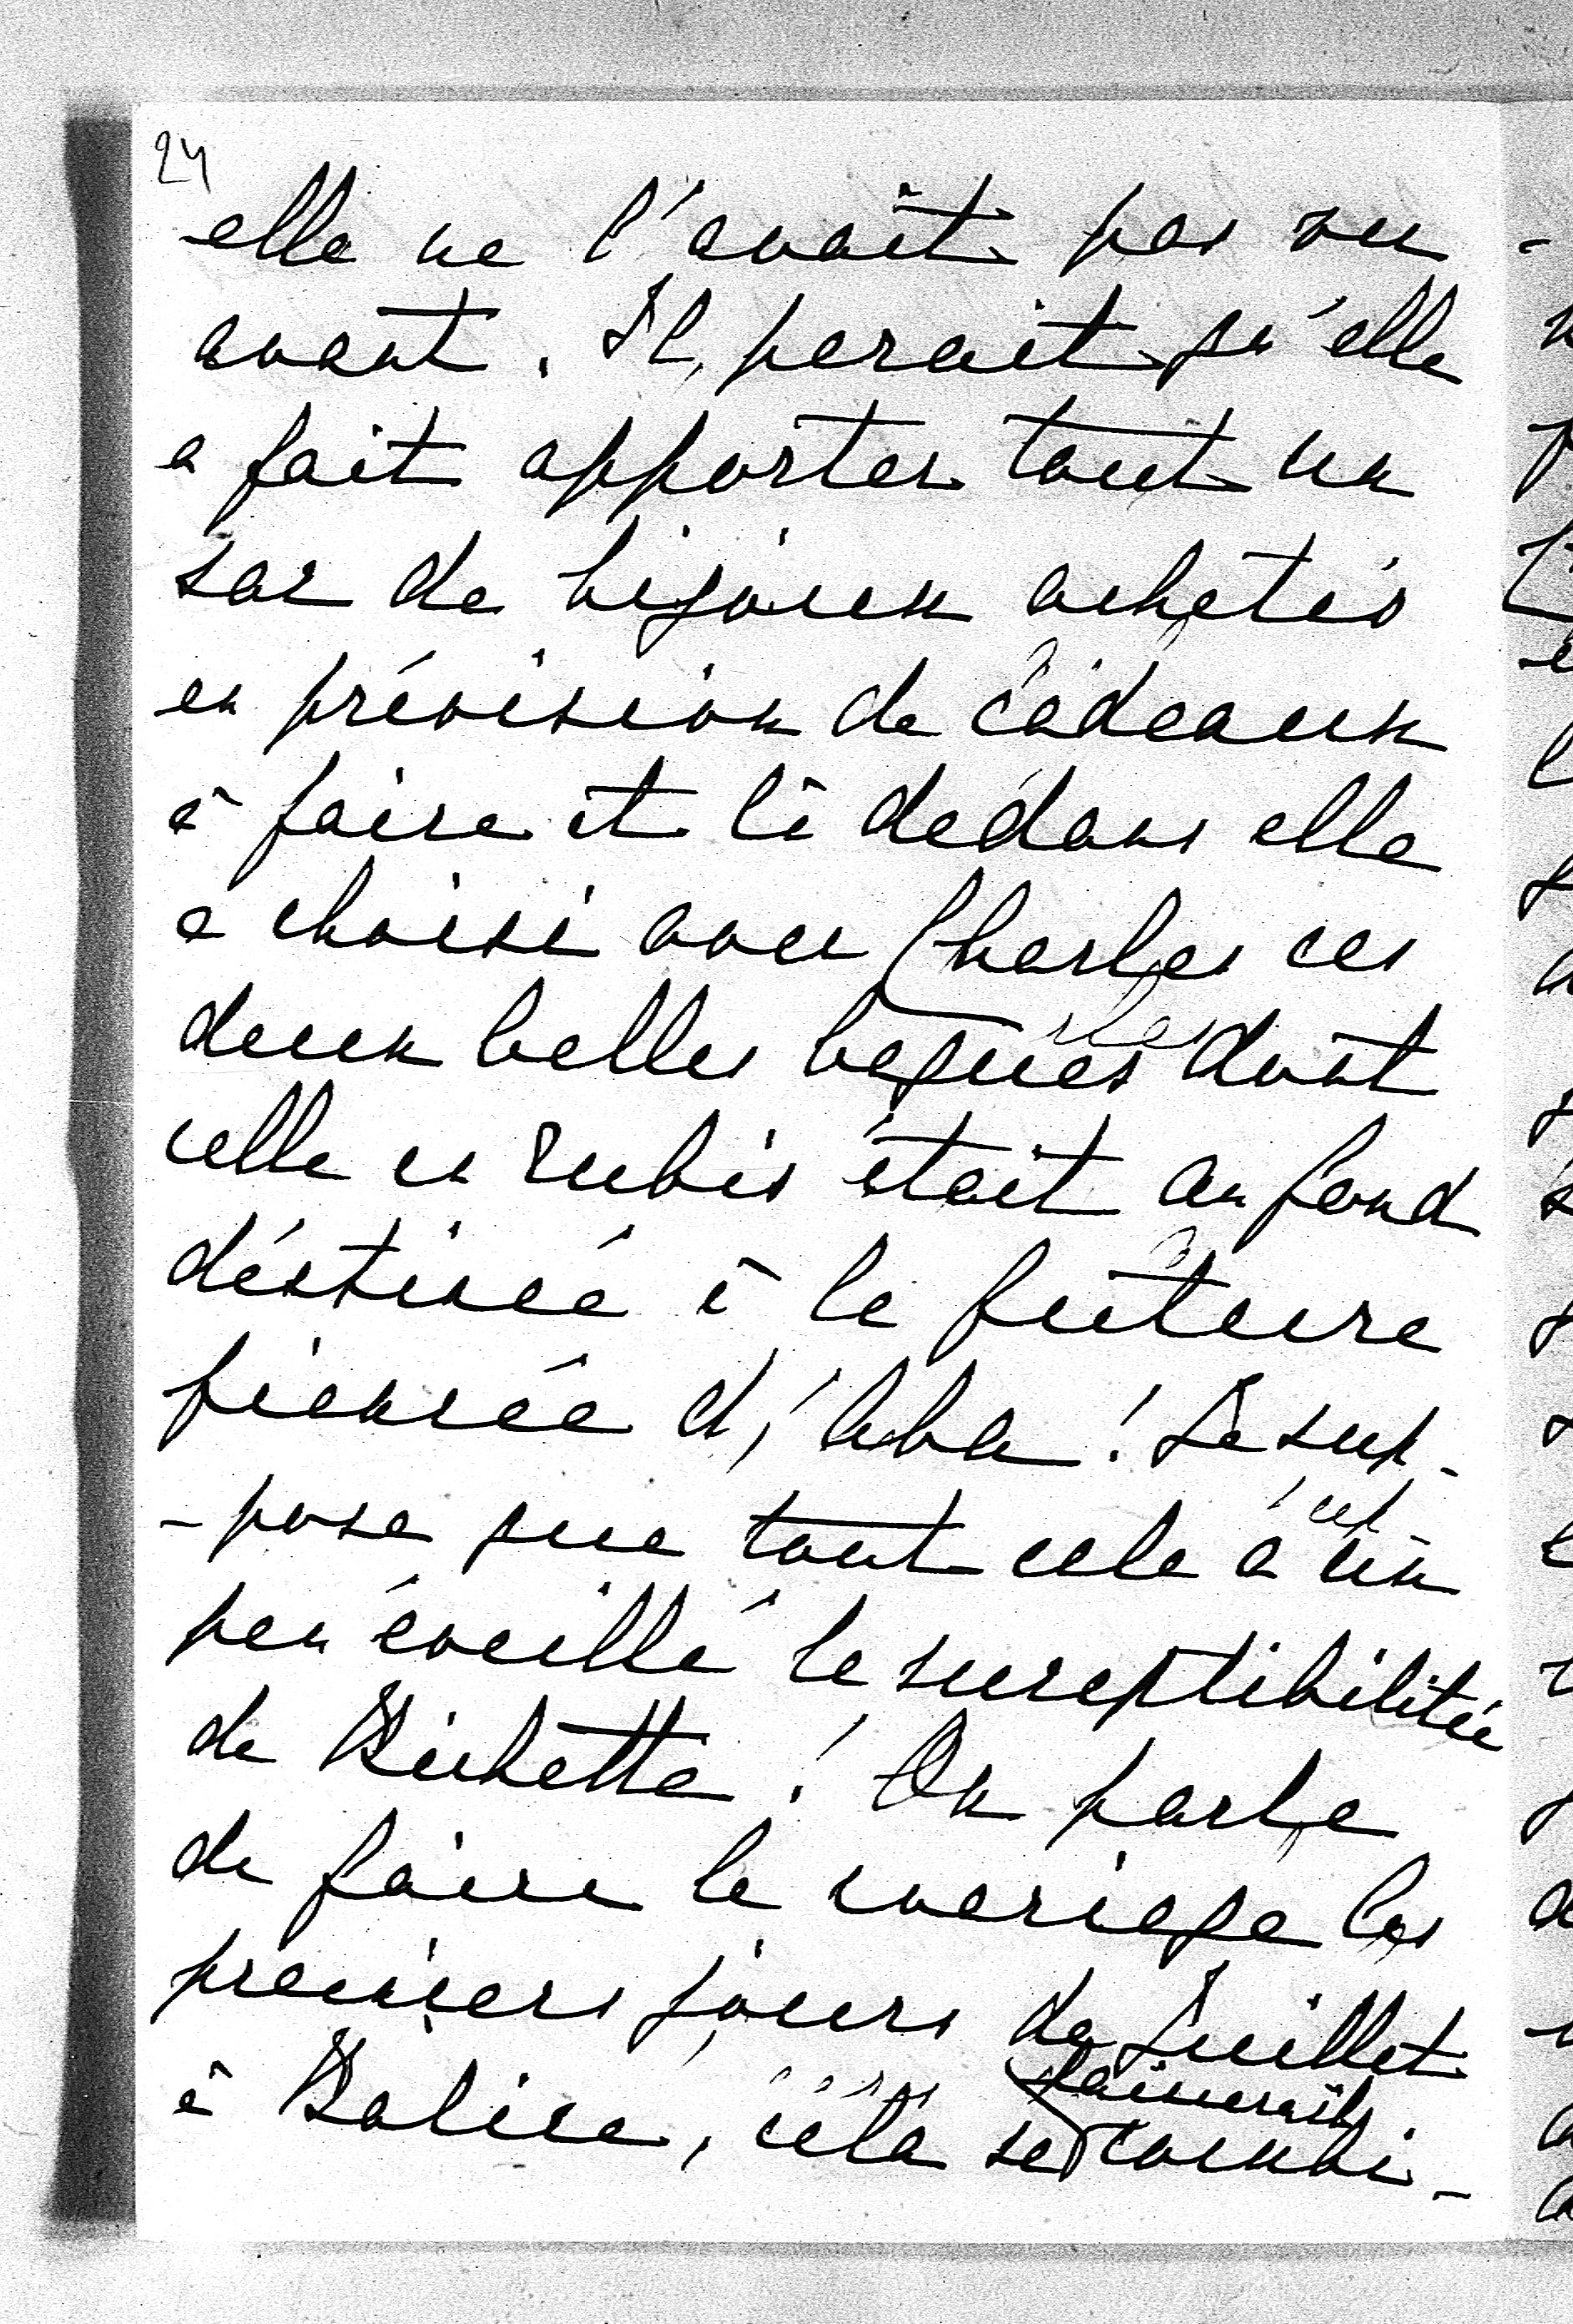 24
elle ne l'avait pas su
avant. Il parait qu'elle
a fait apporter tout un
sac de bijoux achetés
en prévision de cadeaux
à faire et là dedans elle
a choisi avec Charles ces
deux belles bagues dont
celle en rubis était au fond
déstinée à la future
fiancée d'Aba! Je sup-
-pose que tout cela a un
peu éveillé la susceptibilitée
de Bichette! On parle
de faire le mariage les
premiers jours de Juillet
à Balice, cela se combi-